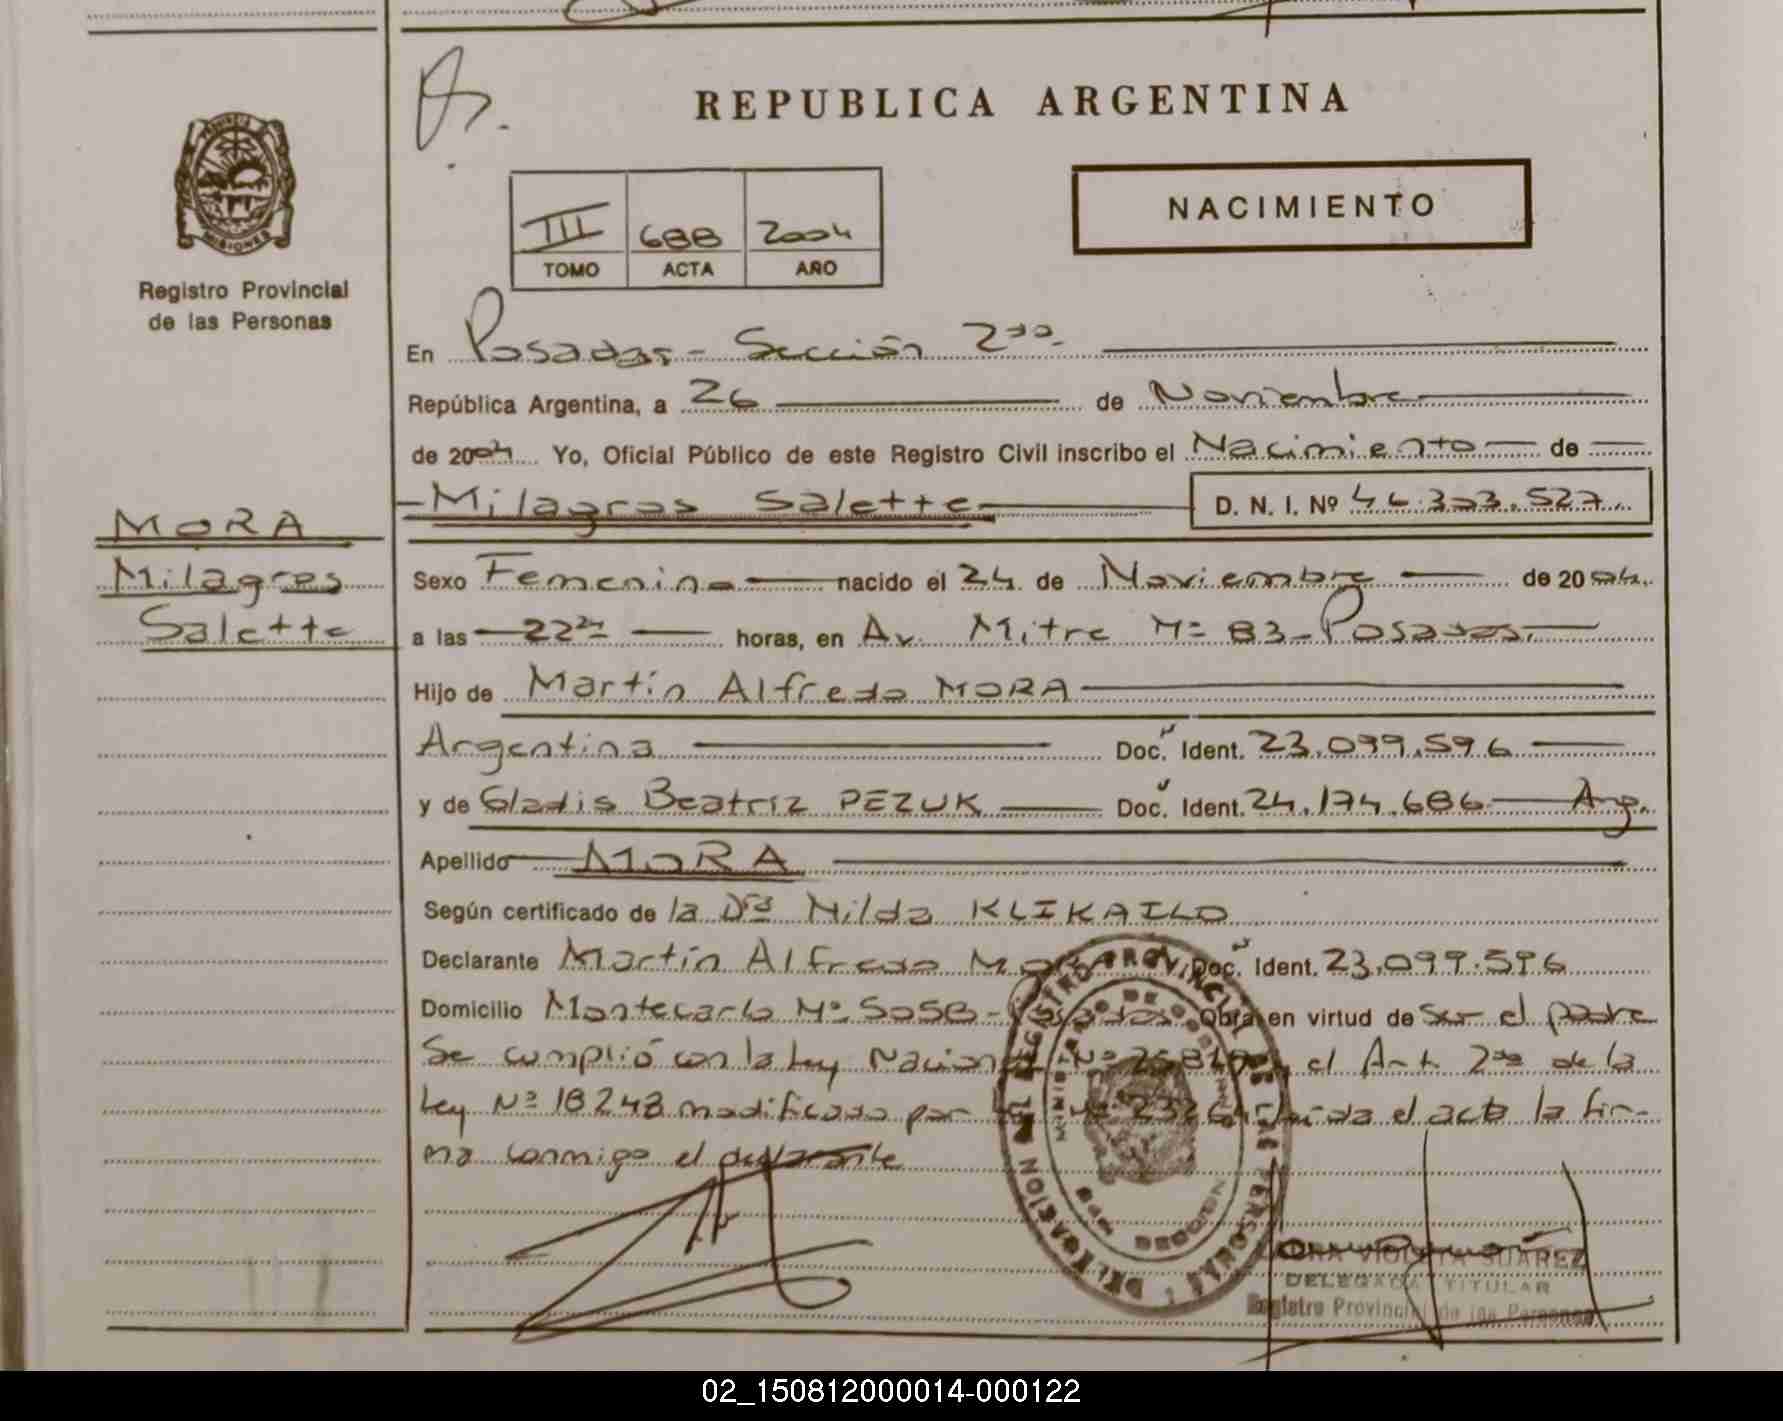 REPUBLICA ARGENTINA
PROVINCIA
MISIONES
Registro Provincial
de las Personas
III 688 2004
TOMO ACTA AÑO
NACIMIENTO
En Posadas - Sección 2da.
República Argentina, a 26 de Noviembre
de 2004 Yo, Oficial Público de este Registro Civil inscribo el Nacimiento de
Milagros Salette D. N. I. Nº 46.303.527
MORA
Milagros
Salette
Sexo Femenino nacido el 24 de Noviembre de 2004.
a las 22 horas, en Av. Mitre Nº 83 - Posadas.
Hijo de Martín Alfredo MORA
Argentina Doc. Ident. 23.099.596
y de Gladis Beatriz PEZUK Doc. Ident. 24.174.686 Arg.
Apellido MORA
Según certificado de la Dra Nilda KLIKAILO
Declarante Martín Alfredo MORA Doc. Ident. 23.099.596
Domicilio Montecarlo Nº 5058 - Posadas Obra en virtud de Ser el padre
Se cumplió con la Ley Nacional Nº el Art. 2do de la
Ley Nº 18248 modificado por 23264 Leída el acta la fir-
ma conmigo el declarante
VIOLETA SUAREZ
DELEGADA TITULAR
Registro Provincial de las Personas
02_150812000014-000122